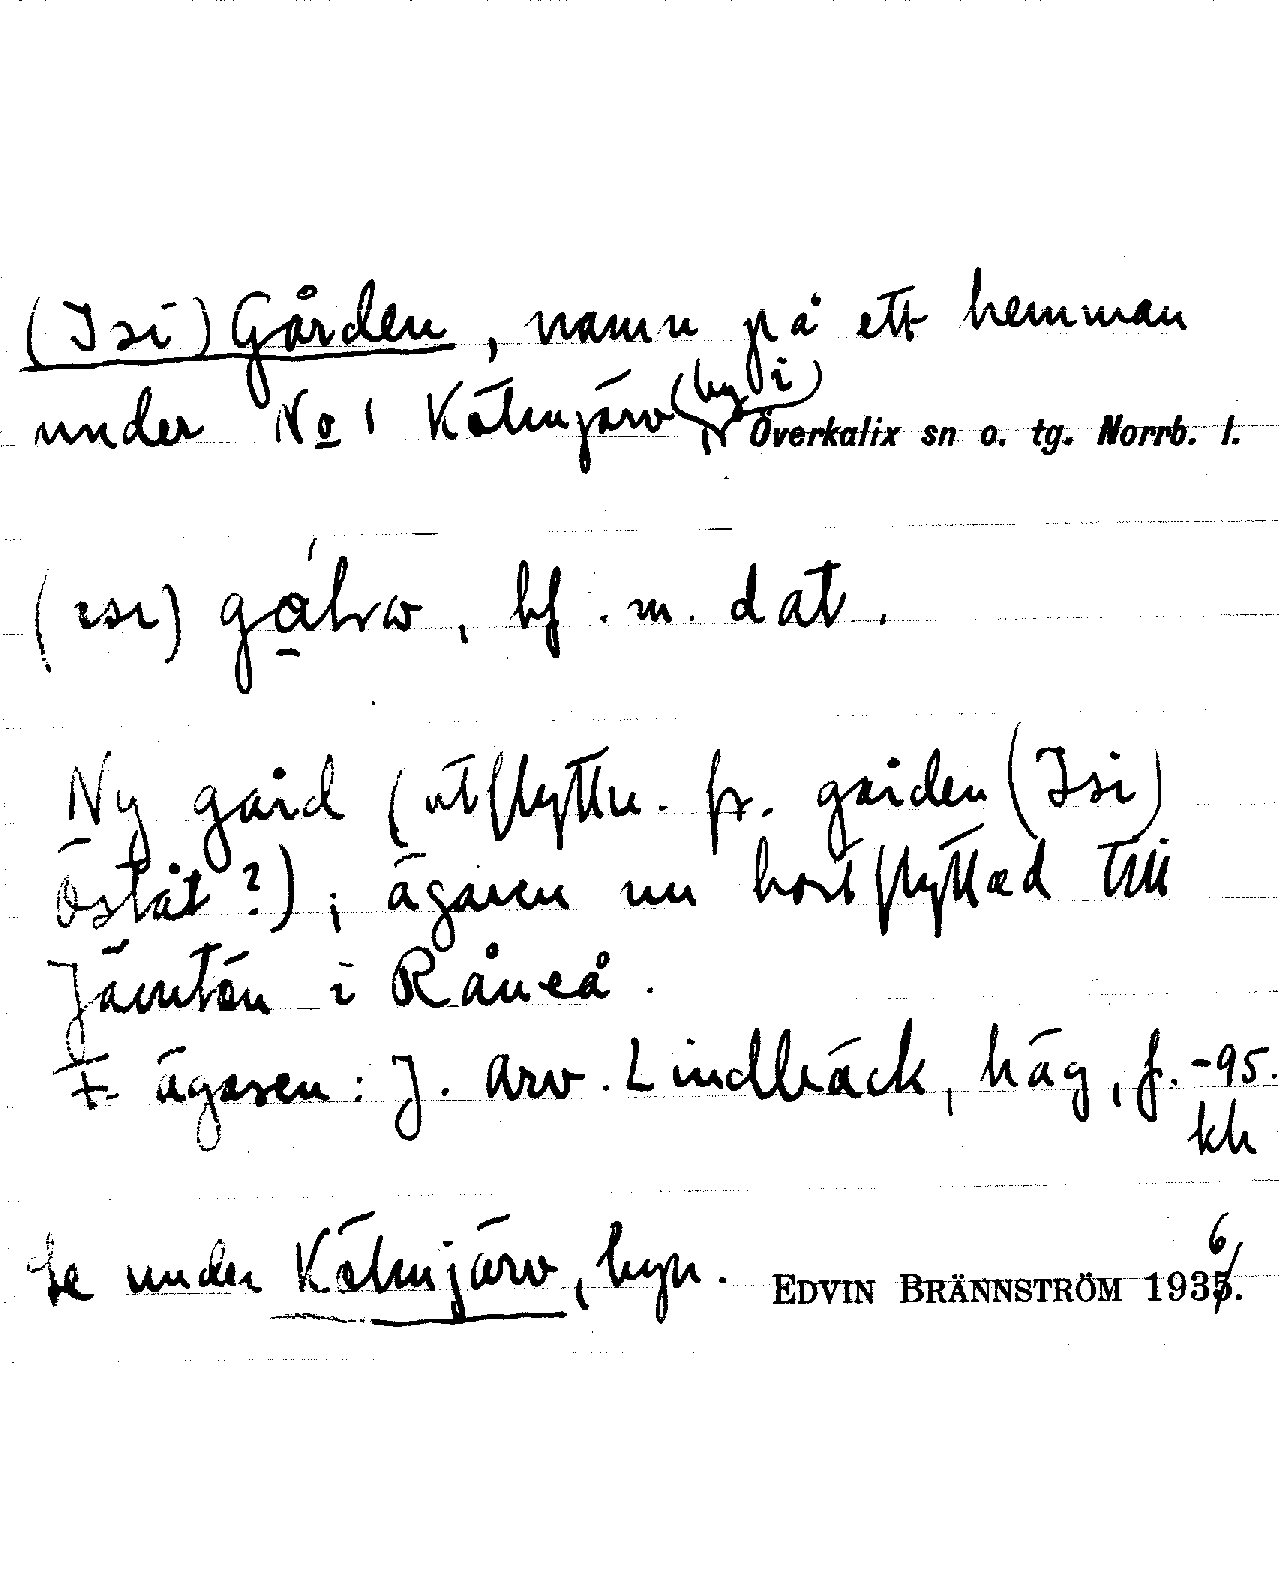 (Isi) Gården, namn på ett hemman
under No 1 Kölmjärv (by i) Överkalix sn o. tg. Norrb. l.
(ɪsɪ) bf. m. dat.
Ny gård (utflyttn. fr. gården (Isi)
Öståt?); ägaren nu bortflyttad till
Jämtön i Råneå.
ägaren: J. Arv. Lindbäck, häg, f. -95.
kh
Se under Kölmjärv, byn. EDVIN BRÄNNSTRÖM 1936.